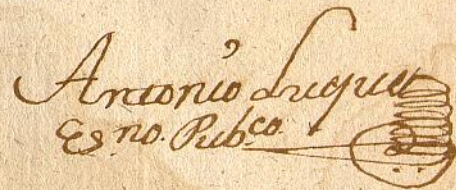 Antonio Luque
Es.no. Pub.co